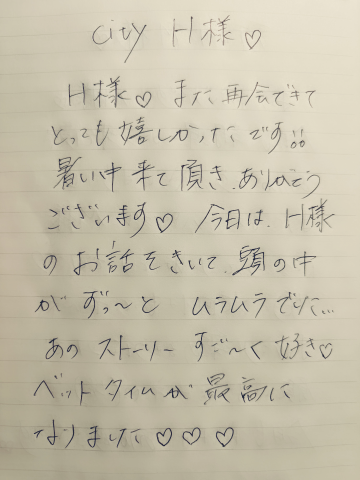 city H様♡
H様♡ また再会できて
とっても嬉しかったです!!
暑い中来て頂き、ありがとう
ございます♡ 今日は、H様
のお話をきいて、頭の中
がずっ〜と ムラムラでした…
あのストーリーすご〜く好き♡
ベットタイムが最高に
なりました♡♡♡